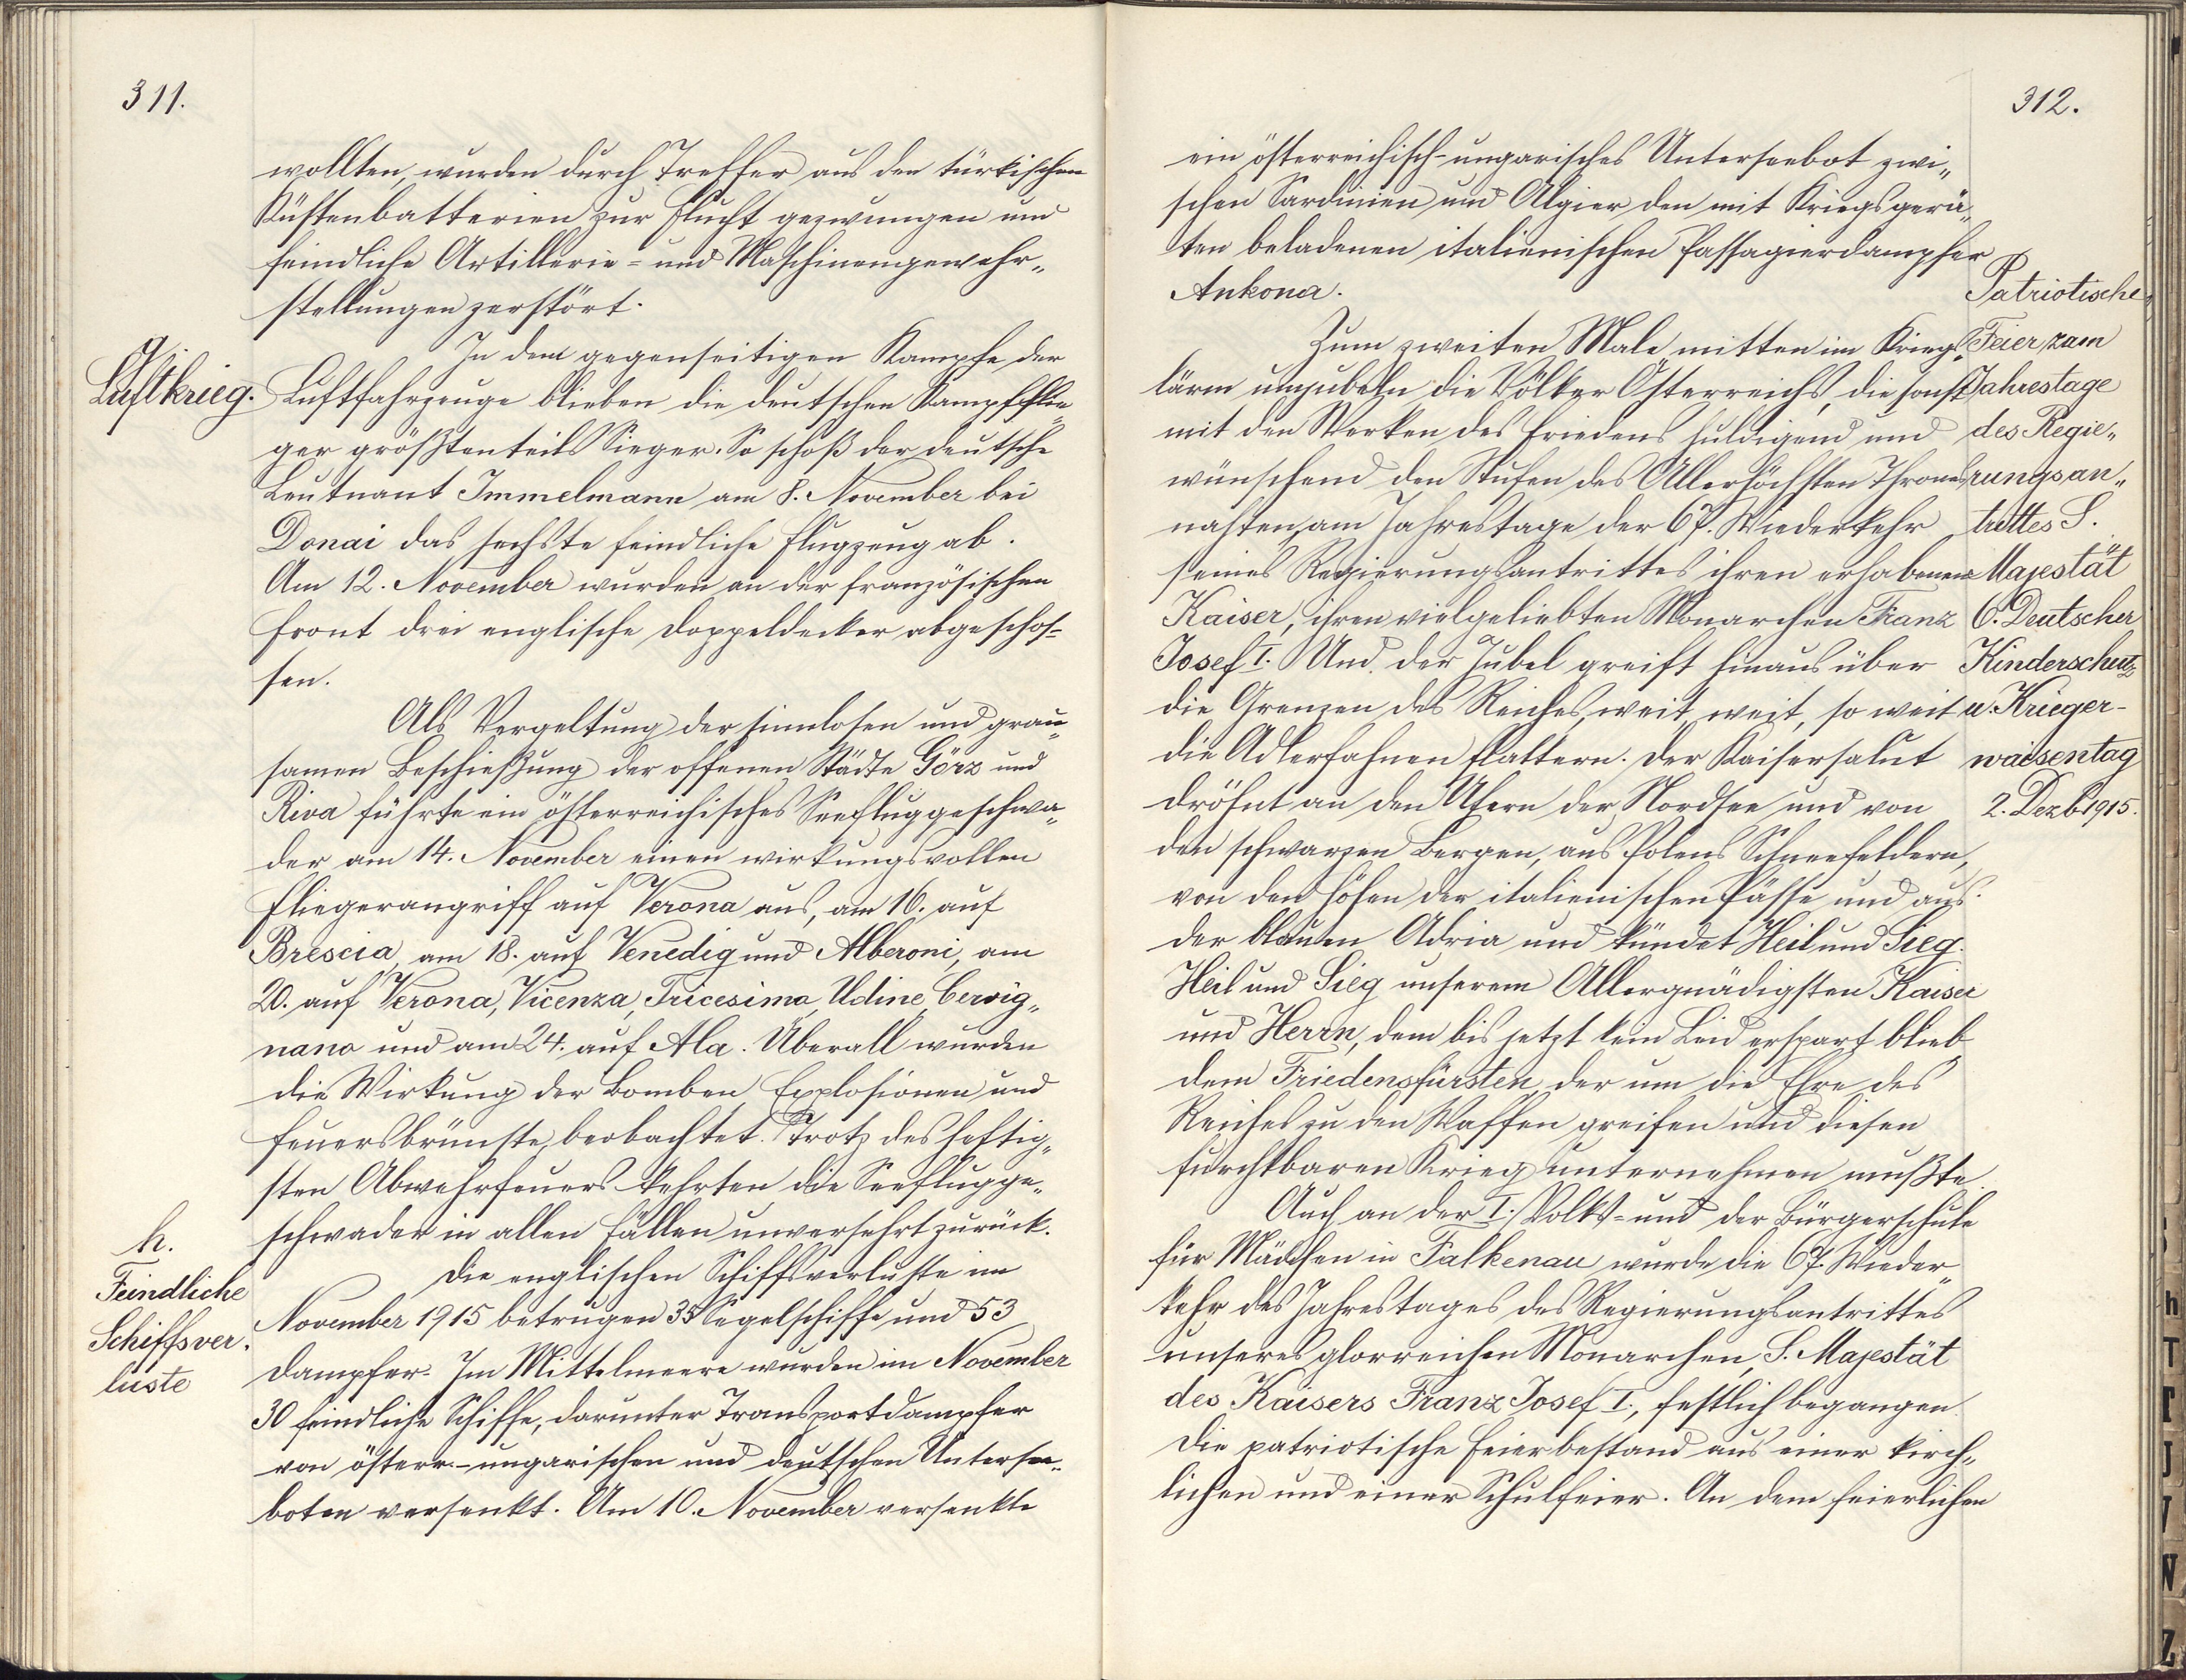 311.
wollten, wurden durch Treffer aus den türkischen
Küstenbatterien zur Flucht gezwungen und
feindliche Artillerie= und Maschinengewehr„
stellungen zerstört.
g.
Luftkrieg.
In dem gegenseitigen Kampfe der
Luftfahrzeuge blieben die deutschen Kampfflie„
ger größtenteils Sieger. So schoß der deutsche
Leutnant Immelmann am 8. November bei
Donai das sechste feindliche Flugzeug ab.
Am 12. November wurden an der französischen
Front drei englische Doppeldecker abgeschos=
sen.
Als Vergeltung der sinnlosen und grau„
samen Beschießung der offenen Städte Görz und
Riva führte ein österreichisches Seefluggeschwa„
der am 14. November einen wirkungsvollen
Fliegerangriff auf Verona aus, am 16. auf
Brescia, am 18. auf Venedig und Alberoni, am
20. auf Verona, Vicenza, Tricesimo, Udine, Cervig„
nano und am 24. auf Ala. Überall wurden
die Wirkung der Bomben, Explosionen und
Feuersbrünste beobachtet. Trotz des heftig„
sten Abwehrfeuers kehrten die Seeflugge„
schwader in allen Fällen unversehrt zurück.
h.
Feindliche
Schiffsver„
luste
Die englischen Schiffsverluste im
November 1915 betrugen 35 Segelschiffe und 53
Dampfer. Im Mittelmeere wurden im November
30 feindliche Schiffe, darunter Transportdampfer
von österr.-ungarischen und deutschen Untersee„
boten versenkt. Am 10. November versenkte
312.
ein österreichisch-ungarisches Unterseebot zwi„
schen Sardinien und Algier den mit Kriegsgerä„
ten beladenen italienischen Passagierdampfer
Ankona.
Patriotische
Feier zum
Jahrestage
des Regie„
rungsan„
trittes S.
Majestät
6. Deutscher
Kinderschutz
u. Krieger-
waisentag
2. Dezb 1915.
Zum zweiten Male mitten im Kriegs„
lärm umjubeln die Völker Österreichs, die sonst
mit den Werken des Friedens huldigend und
wünschend den Stufen des Allerhöchsten Thrones
nahten, am Jahrestage der 67. Wiederkehr
seines Regierungsantrittes ihren erhabenen
Kaiser, ihren vielgeliebten Monarchen Franz
Josef I. Und der Jubel greift hinaus über
die Grenzen des Reiches, weit, weit, so weit
die Adlerfahnen flattern. Der Kaisersalut
dröhnt an den Ufern der Nordsee und von
den schwarzen Bergen, aus Polens Schneefeldern,
von den Höhen der italienischen Pässe und aus
der blauen Adria und kündet Heil und Sieg.
Heil und Sieg unserem Allergnädigsten Kaiser
und Herrn, dem bis jetzt kein Leid erspart blieb,
dem Friedensfürsten, der um die Ehre des
Reiches zu den Waffen greifen und diesen
furchtbaren Krieg unternehmen mußte.
Auch an der I. Volks= und der Bürgerschule
für Mädchen in Falkenau wurde die 67. Wieder„
kehr des Jahrestages des Regierungsantrittes
unseres glorreichen Monarchen, S. Majestät
des Kaisers Franz Josef I., festlich begangen.
Die patriotische Feier bestand aus einer kirch„
lichen und einer Schulfeier. An dem feierlichen
h
T
T
U
V
W
Z